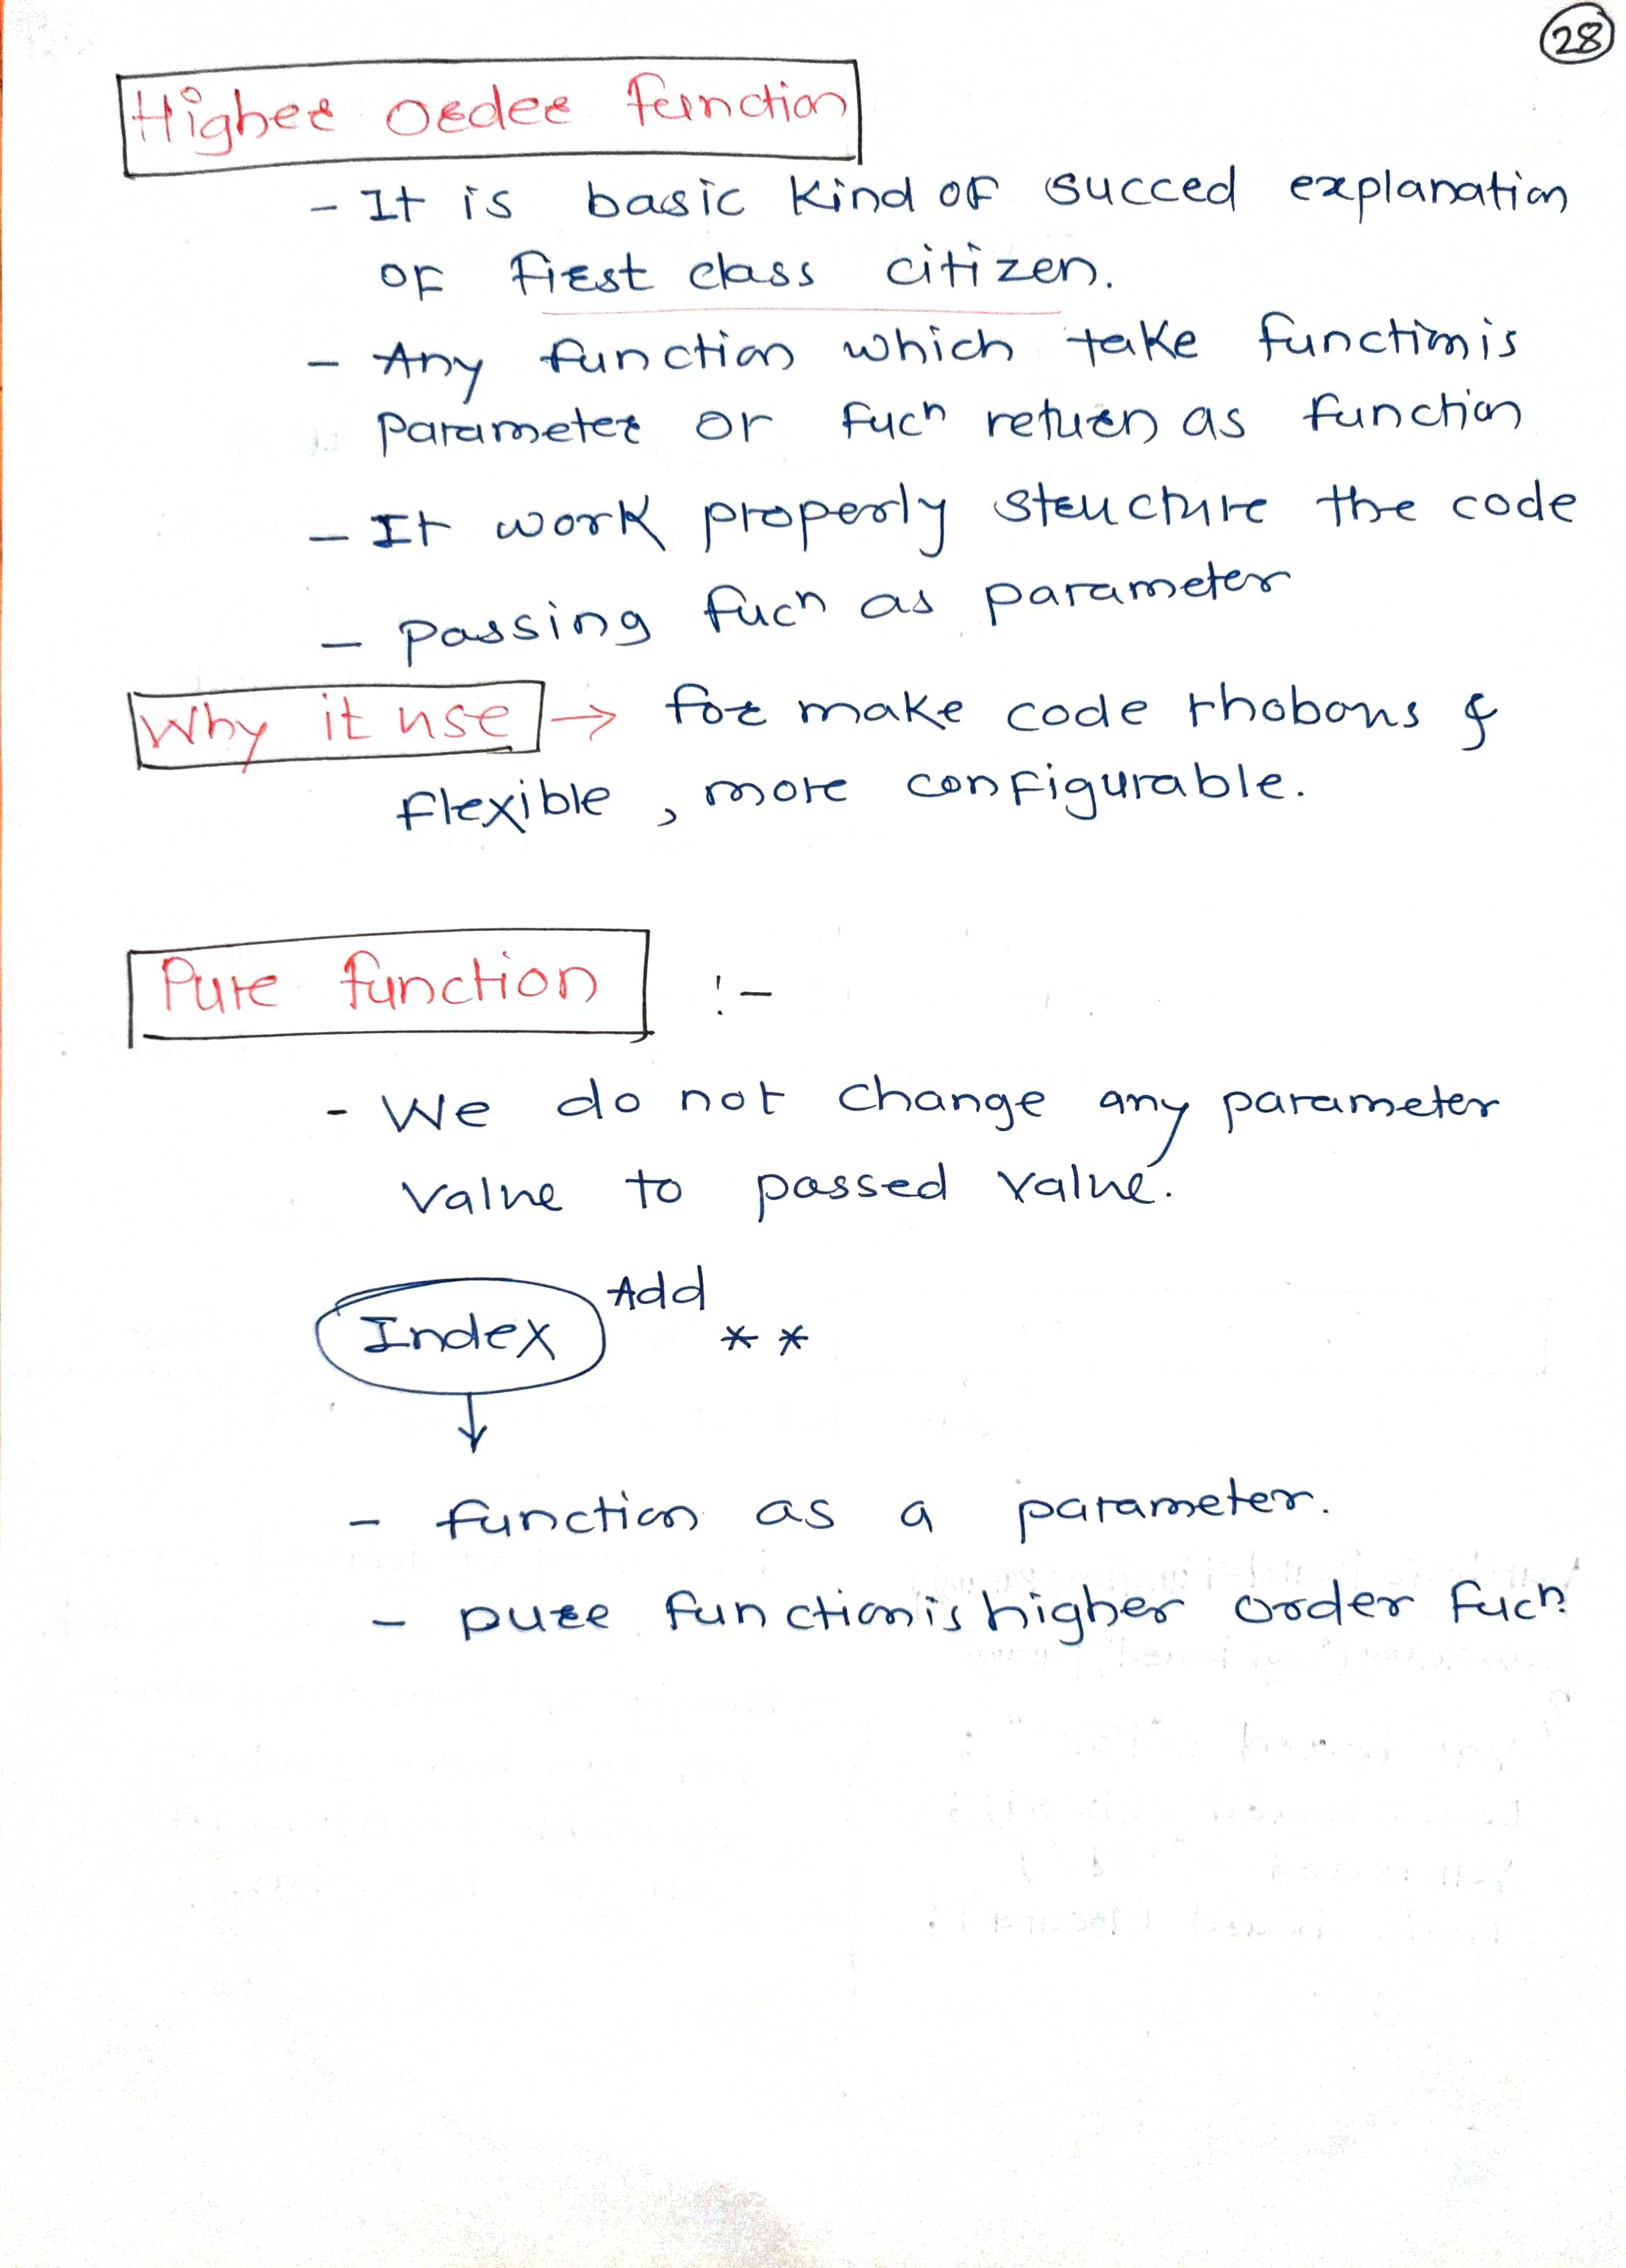 28
Higher order function
- It is basic kind of succed explanation
of first class citizen.
- Any function which take function is
parameter or fuch return as function
- It work properly structure the code
- passing fuch as parameter
Why it use → for make code rhobons &
flexible , more configurable.
Pure function :-
- We do not change any parameter
value to passed value.
Index Add **
↓
- function as a parameter.
- pure function is higher order fuch